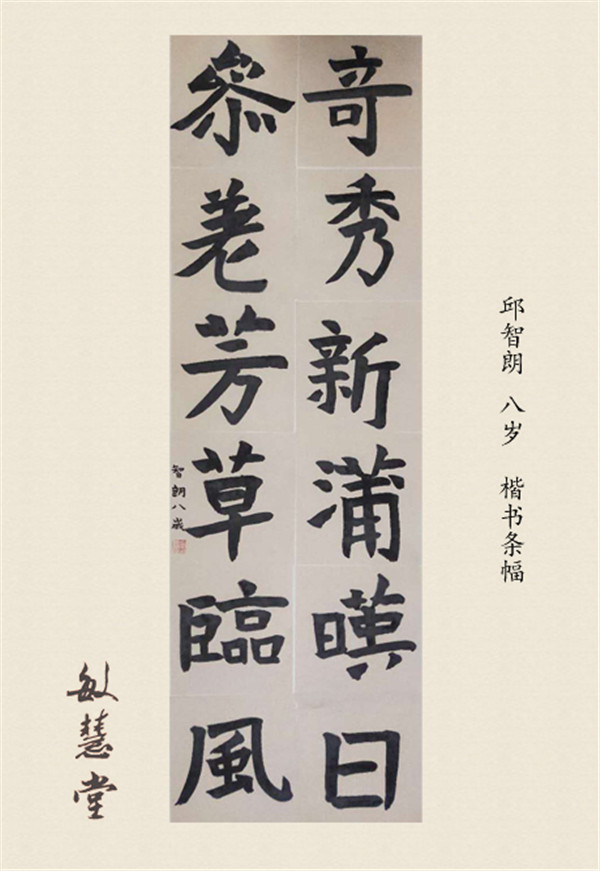 邱智朗 八岁 楷书条幅
竒秀新蒲暎日
叅差芳草臨風
智朗八歲
敏慧堂